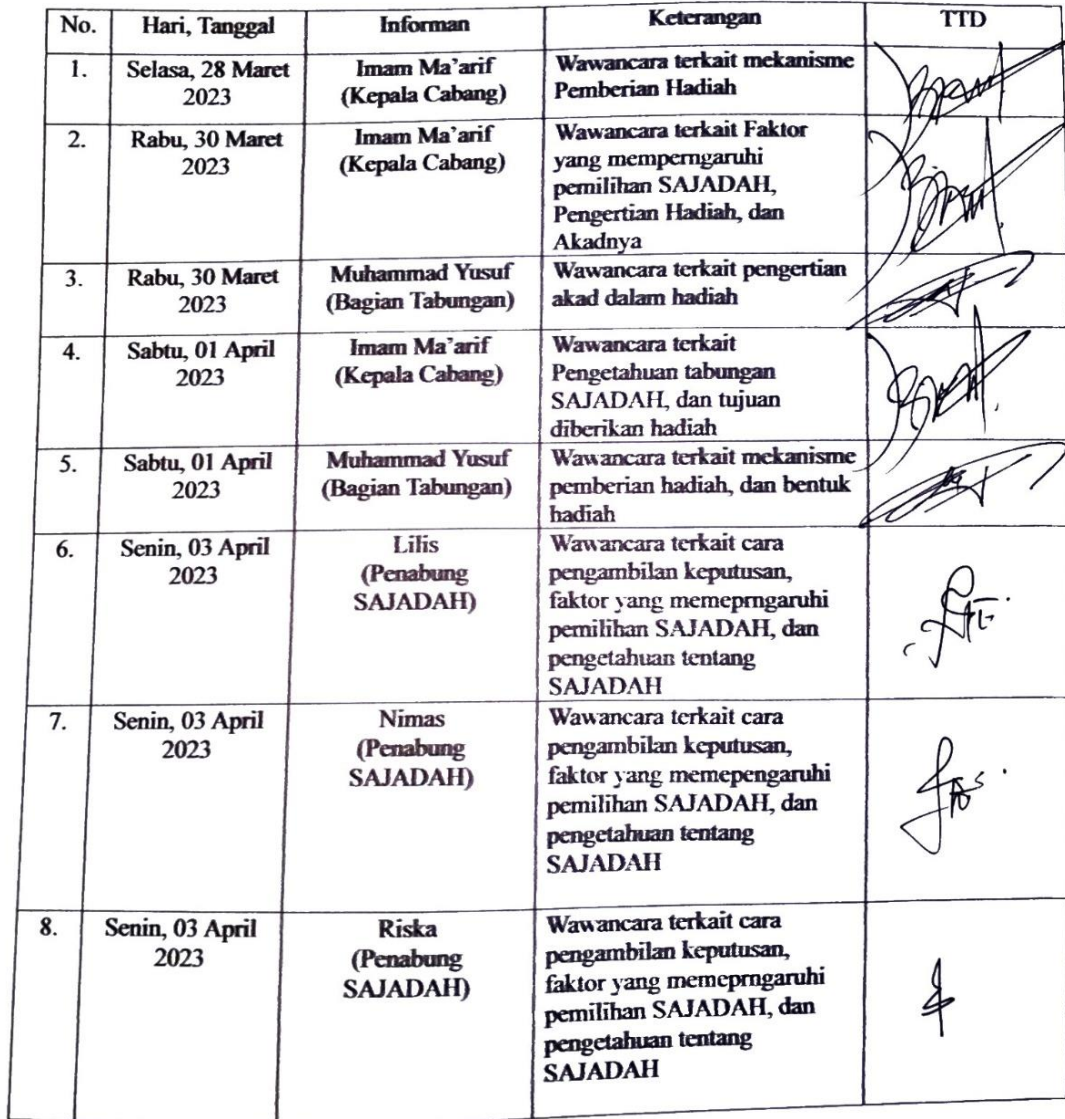 No. Hari, Tanggal Informan Keterangan TTD
1. Selasa, 28 Maret 2023 Imam Ma'arif (Kepala Cabang) Wawancara terkait mekanisme
Pemberian Hadiah
2. Rabu, 30 Maret 2023 Imam Ma'arif (Kepala Cabang) Wawancara terkait Faktor
yang memperngaruhi
pemilihan SAJADAH,
Pengertian Hadiah, dan
Akadnya
3. Rabu, 30 Maret 2023 Muhammad Yusuf (Bagian Tabungan) Wawancara terkait pengertian
akad dalam hadiah
4. Sabtu, 01 April 2023 Imam Ma'arif (Kepala Cabang) Wawancara terkait
Pengetahuan tabungan
SAJADAH, dan tujuan
diberikan hadiah
5. Sabtu, 01 April 2023 Muhammad Yusuf (Bagian Tabungan) Wawancara terkait mekanisme
pemberian hadiah, dan bentuk
hadiah
6. Senin, 03 April 2023 Lilis (Penabung SAJADAH) Wawancara terkait cara
pengambilan keputusan,
faktor yang memeprngaruhi
pemilihan SAJADAH, dan
pengetahuan tentang
SAJADAH
7. Senin, 03 April 2023 Nimas (Penabung SAJADAH) Wawancara terkait cara
pengambilan keputusan,
faktor yang memepengaruhi
pemilihan SAJADAH, dan
pengetahuan tentang
SAJADAH
8. Senin, 03 April 2023 Riska (Penabung SAJADAH) Wawancara terkait cara
pengambilan keputusan,
faktor yang memeprngaruhi
pemilihan SAJADAH, dan
pengetahuan tentang
SAJADAH